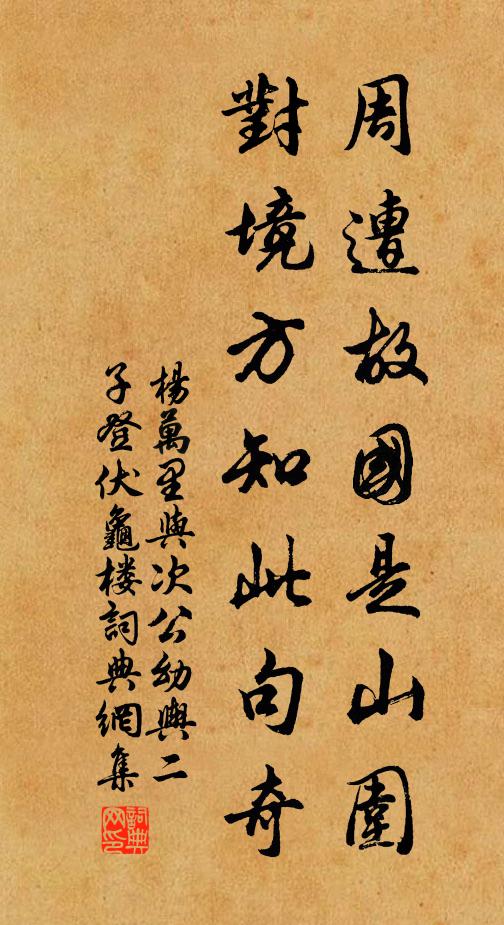 周遭故國是山圍
對境方知此句奇
楊萬里與次公幼輿二
子登伏龜樓詞典網集
詞典网印